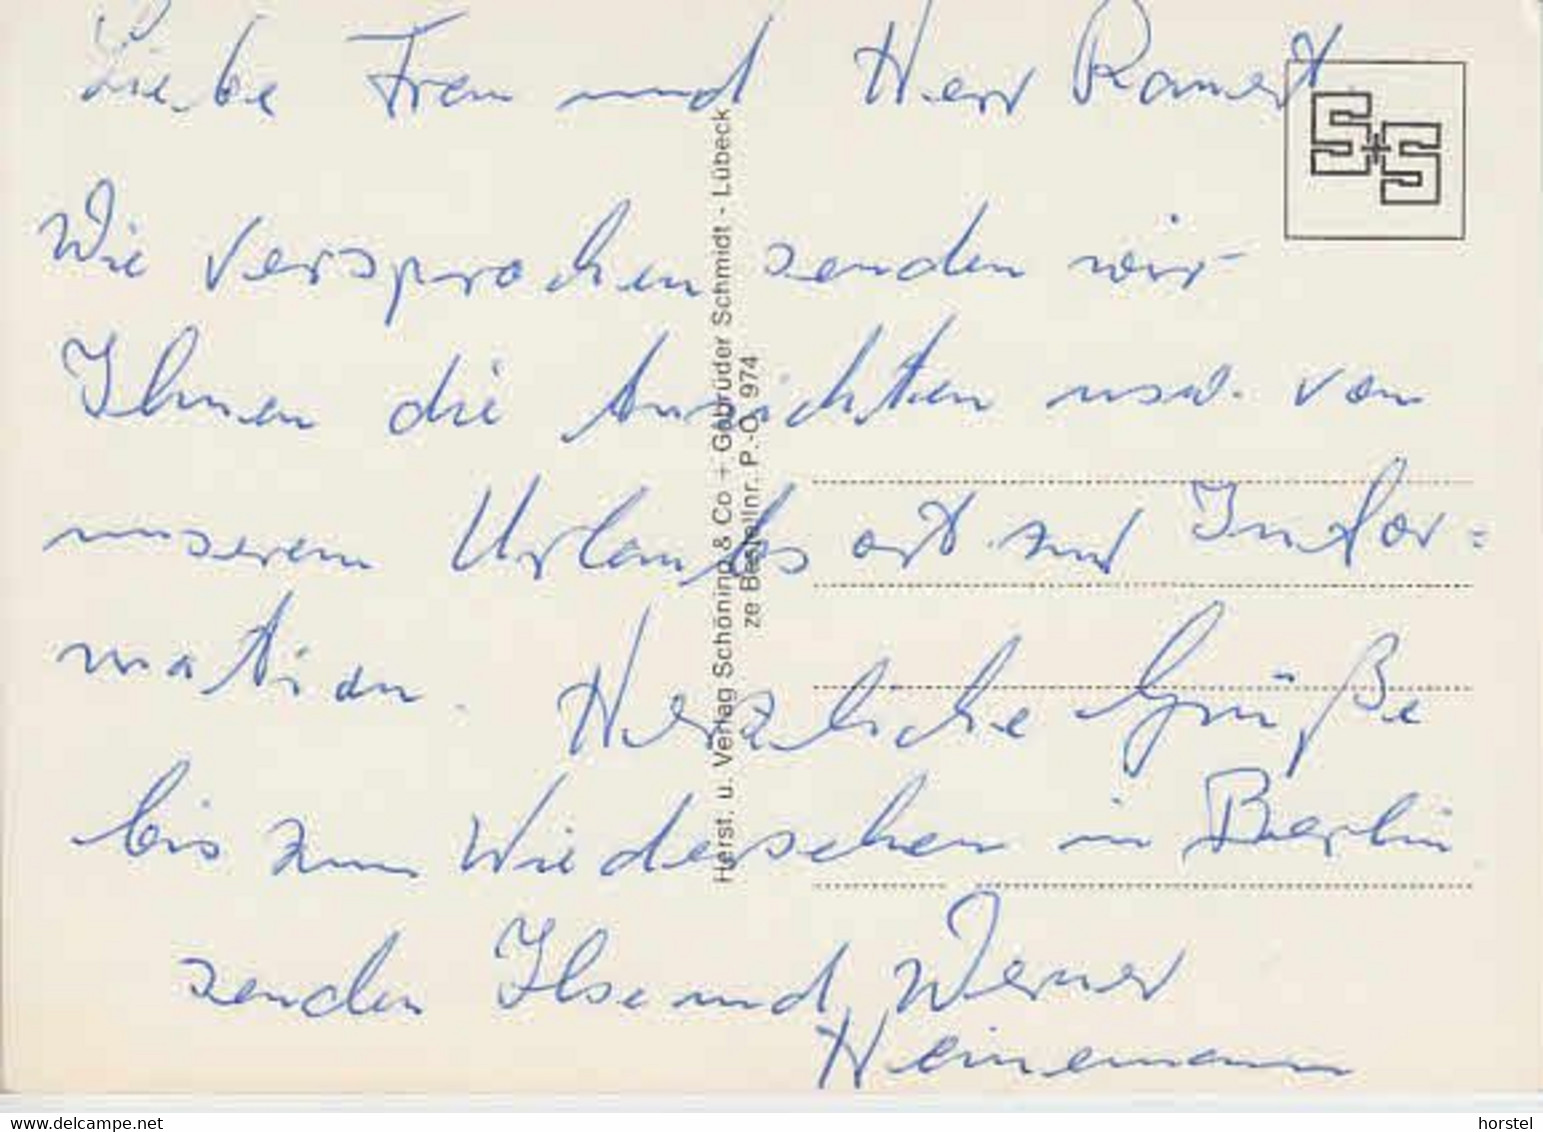 Liebe Frau und Herr
Wie versprochen senden wir
Ihnen die Ansichten usw. von
unserem Urlaubsort zur Infor=
mation. Herzliche Grüße
bis zum Wiedersehen in Berlin
senden Ilse und Werner
Heinemann
S+S
Herst. u. Verlag Schöning & Co + Gebrüder Schmidt - Lübeck
ze Bestellnr. P.-O. 974
www.delcampe.net
horstel